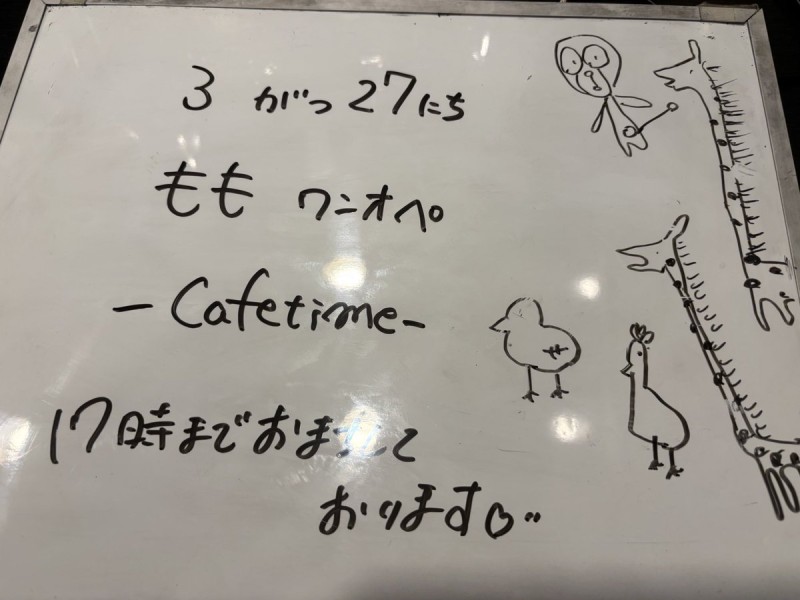 3 がつ 27にち
もも ワンオペ
-Cafetime-
17時までおまちして
おります♡..